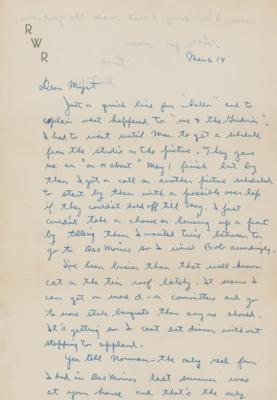 R
W
R
March 14
Dear Mygt
Just a quick line for "hello" and to
explain what happened to "me & the Gridiron".
I had to wait until Mon. to get a schedule
from the studio on the picture. They gave
me an "on or about" May 1 finish but by
then I got a call on another picture scheduled
to start by then with a possible over lap
if they couldn't hold off till May. I just
couldn't take a chance on lousing up a part
by telling them I wanted time between to
go to Des Moines so I wired Bob accordingly.
I've been busier than that well known
cat on the tin roof lately. It seems I
can get on more d-n committees and go
to more state banquets than any one should.
It's getting so I can't eat dinner without
stopping to applaud.
You tell Norman - the only real fun
I had in Des Moines last summer was
at your house and that's the only